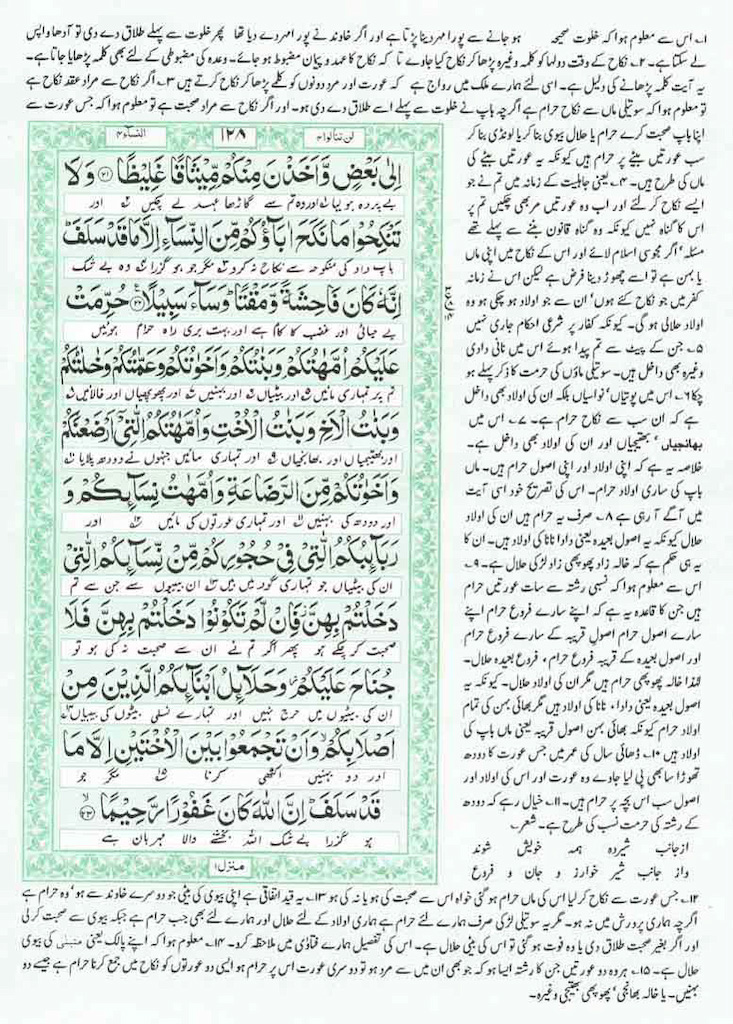 ۱۔ اس سے معلوم ہوا کہ خلوت صحیحہ ہو جانے سے پورا مہر دینا پڑتا ہے اور اگر خاوند نے پورا مہر دے دیا تھا پھر خلوت سے پہلے طلاق دے دی تو آدھا واپس
لے سکتا ہے۔ ۲۔ نکاح کے وقت دولہا کو کلمہ وغیرہ پڑھا کر نکاح کیا جاوے تا کہ نکاح کا عہد و پیمان مضبوط ہو جائے۔ وعدہ کی مضبوطی کے لئے بھی کلمہ پڑھایا جاتا ہے۔
یہ آیت کلمہ پڑھانے کی دلیل ہے۔ اسی لئے ہمارے ملک میں رواج ہے کہ عورت اور مرد دونوں کو کلمے پڑھا کر نکاح کرتے ہیں ۳۔ اگر نکاح سے مراد عقد نکاح ہے
تو معلوم ہوا کہ سوتیلی ماں سے نکاح حرام ہے اگرچہ باپ نے خلوت سے پہلے اسے طلاق دے دی ہو۔ اور اگر نکاح سے مراد صحبت ہے تو معلوم ہوا کہ جس عورت سے
اپنا باپ صحبت کرے حرام یا حلال بیوی بنا کر یا لونڈی بنا کر
سب عورتیں بیٹے پر حرام ہیں کیونکہ یہ عورتیں بیٹے کی
ماں کی طرح ہیں۔ ۴۔ یعنی جاہلیت کے زمانہ میں تم نے جو
ایسے نکاح کر لئے اور اب وہ عورتیں مر بھی چکیں تم پر
اس کا گناہ نہیں کیونکہ وہ گناہ قانون بننے سے پہلے تھے
مسئلہ' اگر مجوسی اسلام لائے اور اس کے نکاح میں اپنی ماں
یا بہن ہے تو اسے چھوڑ دینا فرض ہے لیکن اس نے زمانہ
کفر میں جو نکاح کئے ہوں' ان سے جو اولاد ہو چکی ہو وہ
اولاد حلالی ہو گی۔ کیونکہ کفار پر شرعی احکام جاری نہیں
۵۔ جن کے پیٹ سے تم پیدا ہوئے اس میں نانی دادی
وغیرہ بھی داخل ہیں۔ سوتیلی ماؤں کی حرمت کا ذکر پہلے ہو
چکا ۶۔ اس میں پوتیاں' نواسیاں بلکہ ان کی اولاد بھی داخل
ہے کہ ان سب سے نکاح حرام ہے۔ ۷۔ اس میں
بھانجیاں' بھتیجیاں اور ان کی اولاد بھی داخل ہے۔
خلاصہ یہ ہے کہ اپنی اولاد اور اپنی اصول حرام ہیں۔ ماں
باپ کی ساری اولاد حرام۔ اس کی تصریح خود اسی آیت
میں آگے آ رہی ہے ۸۔ صرف یہ حرام ہیں ان کی اولاد
حلال کیونکہ یہ اصول بعیدہ یعنی دادا نانا کی اولاد ہیں۔ ان کا
یہ ہی حکم ہے کہ خالہ زاد پھوپھی زاد لڑکی حلال ہے۔ ۹۔
اس سے معلوم ہوا کہ نسبی رشتہ سے سات عورتیں حرام
ہیں جن کا قاعدہ یہ ہے کہ اپنے سارے فروع حرام اپنے
سارے اصول حرام اصول قریبہ کے سارے فروع حرام
اور اصول بعیدہ کے قریبہ فروع حرام، فروع بعیدہ حلال۔
لہٰذا خالہ پھوپھی حرام ہیں مگر ان کی اولاد حلال۔ کیونکہ یہ
اصول بعیدہ یعنی دادا، نانا کی اولاد ہیں مگر بھائی بہن کی تمام
اولاد حرام کیونکہ بھائی بہن اصول قریبہ یعنی ماں باپ کی
اولاد ہیں ۱۰۔ ڈھائی سال کی عمر میں جس عورت کا دودھ
تھوڑا سا بھی پی لیا جاوے وہ عورت اور اس کی اولاد اور
اصول سب اس بچہ پر حرام ہیں۔ ۱۱۔ خیال رہے کہ دودھ
کے رشتہ کی حرمت نسب کی طرح ہے۔ شعر۔
ازجانب شیردہ ہمہ خویش شوند
واز جانب شیر خوارز و جان و فروع
النسآء ۴
۱۲۸
لن تنالوا ۴
اِلٰی بَعْضٍ وَّاَخَذْنَ مِنْکُمْ مِّیْثَاقًا غَلِیْظًا ﴿۲۱﴾ وَلَا
بے پردہ ہو لیا اور وہ تم سے گاڑھا عہد لے چکیں اور
تَنْکِحُوْا مَا نَکَحَ اٰبَآؤُکُمْ مِّنَ النِّسَآءِ اِلَّا مَا قَدْ سَلَفَ
باپ دادا کی منکوحہ سے نکاح نہ کرو مگر جو ہو گزرا وہ بے شک
اِنَّهٗ کَانَ فَاحِشَةً وَّمَقْتًا وَسَآءَ سَبِیْلًا ﴿۲۲﴾ حُرِّمَتْ
بے حیائی اور غضب کا کام ہے اور بہت بری راہ حرام ہوئیں
عَلَیْکُمْ اُمَّهٰتُکُمْ وَبَنٰتُکُمْ وَاَخَوٰتُکُمْ وَعَمّٰتُکُمْ وَخٰلٰتُکُمْ
تم پر تمہاری مائیں اور بیٹیاں اور بہنیں اور پھوپھیاں اور خالائیں
وَبَنٰتُ الْاَخِ وَبَنٰتُ الْاُخْتِ وَاُمَّهٰتُکُمُ الّٰتِیْۤ اَرْضَعْنَکُمْ
اور بھتیجیاں اور بھانجیاں اور تمہاری مائیں جنہوں نے دودھ پلایا
وَاَخَوٰتُکُمْ مِّنَ الرَّضَاعَةِ وَاُمَّهٰتُ نِسَآئِکُمْ وَ
اور دودھ کی بہنیں اور تمہاری عورتوں کی مائیں اور
رَبَآئِبُکُمُ الّٰتِیْ فِیْ حُجُوْرِکُمْ مِّنْ نِّسَآئِکُمُ الّٰتِیْ
ان کی بیٹیاں جو تمہاری گود میں ہیں ان بیبیوں سے جن سے تم
دَخَلْتُمْ بِهِنَّ فَاِنْ لَّمْ تَکُوْنُوْا دَخَلْتُمْ بِهِنَّ فَلَا
صحبت کر چکے ہو پھر اگر تم نے ان سے صحبت نہ کی ہو تو
جُنَاحَ عَلَیْکُمْ وَحَلَآئِلُ اَبْنَآئِکُمُ الَّذِیْنَ مِنْ
ان کی بیٹیوں میں حرج نہیں اور تمہارے نسلی بیٹوں کی بیبیاں
اَصْلَابِکُمْ وَاَنْ تَجْمَعُوْا بَیْنَ الْاُخْتَیْنِ اِلَّا مَا
اور دو بہنیں اکٹھی کرنا مگر جو
قَدْ سَلَفَ اِنَّ اللّٰهَ کَانَ غَفُوْرًا رَّحِیْمًا ﴿۲۳﴾
ہو گزرا بے شک اللہ بخشنے والا مہربان ہے
منزل ۱
۱۲۔ جس عورت سے نکاح کر لیا اس کی ماں حرام ہو گئی خواہ اس سے صحبت کی ہو یا نہ کی ہو ۱۳۔ یہ قید اتفاقی ہے اپنی بیوی کی بیٹی جو دوسرے خاوند سے ہو' وہ حرام ہے
اگرچہ ہماری پرورش میں نہ ہو۔ مگر یہ سوتیلی لڑکی صرف ہمارے لئے حرام ہے ہماری اولاد کے لئے حلال اور ہمارے لئے بھی جب حرام ہے جبکہ بیوی سے صحبت کر لی
اور اگر بغیر صحبت طلاق دی یا وہ فوت ہو گئی تو اس کی بیٹی حلال ہے۔ اس کی تفصیل ہمارے فتاوٰی میں ملاحظہ کرو۔ ۱۴۔ معلوم ہوا کہ اپنے پالک یعنی متبنٰی کی بیوی
حلال ہے۔ ۱۵۔ ہر وہ دو عورتیں جن کا رشتہ ایسا ہو کہ جو بھی ان میں سے مرد ہو تو دوسری عورت اس پر حرام ہو ایسی دو عورتوں کو نکاح میں جمع کرنا حرام ہے جیسے دو
بہنیں۔ یا خالہ بھانجی' پھوپھی بھتیجی وغیرہ۔